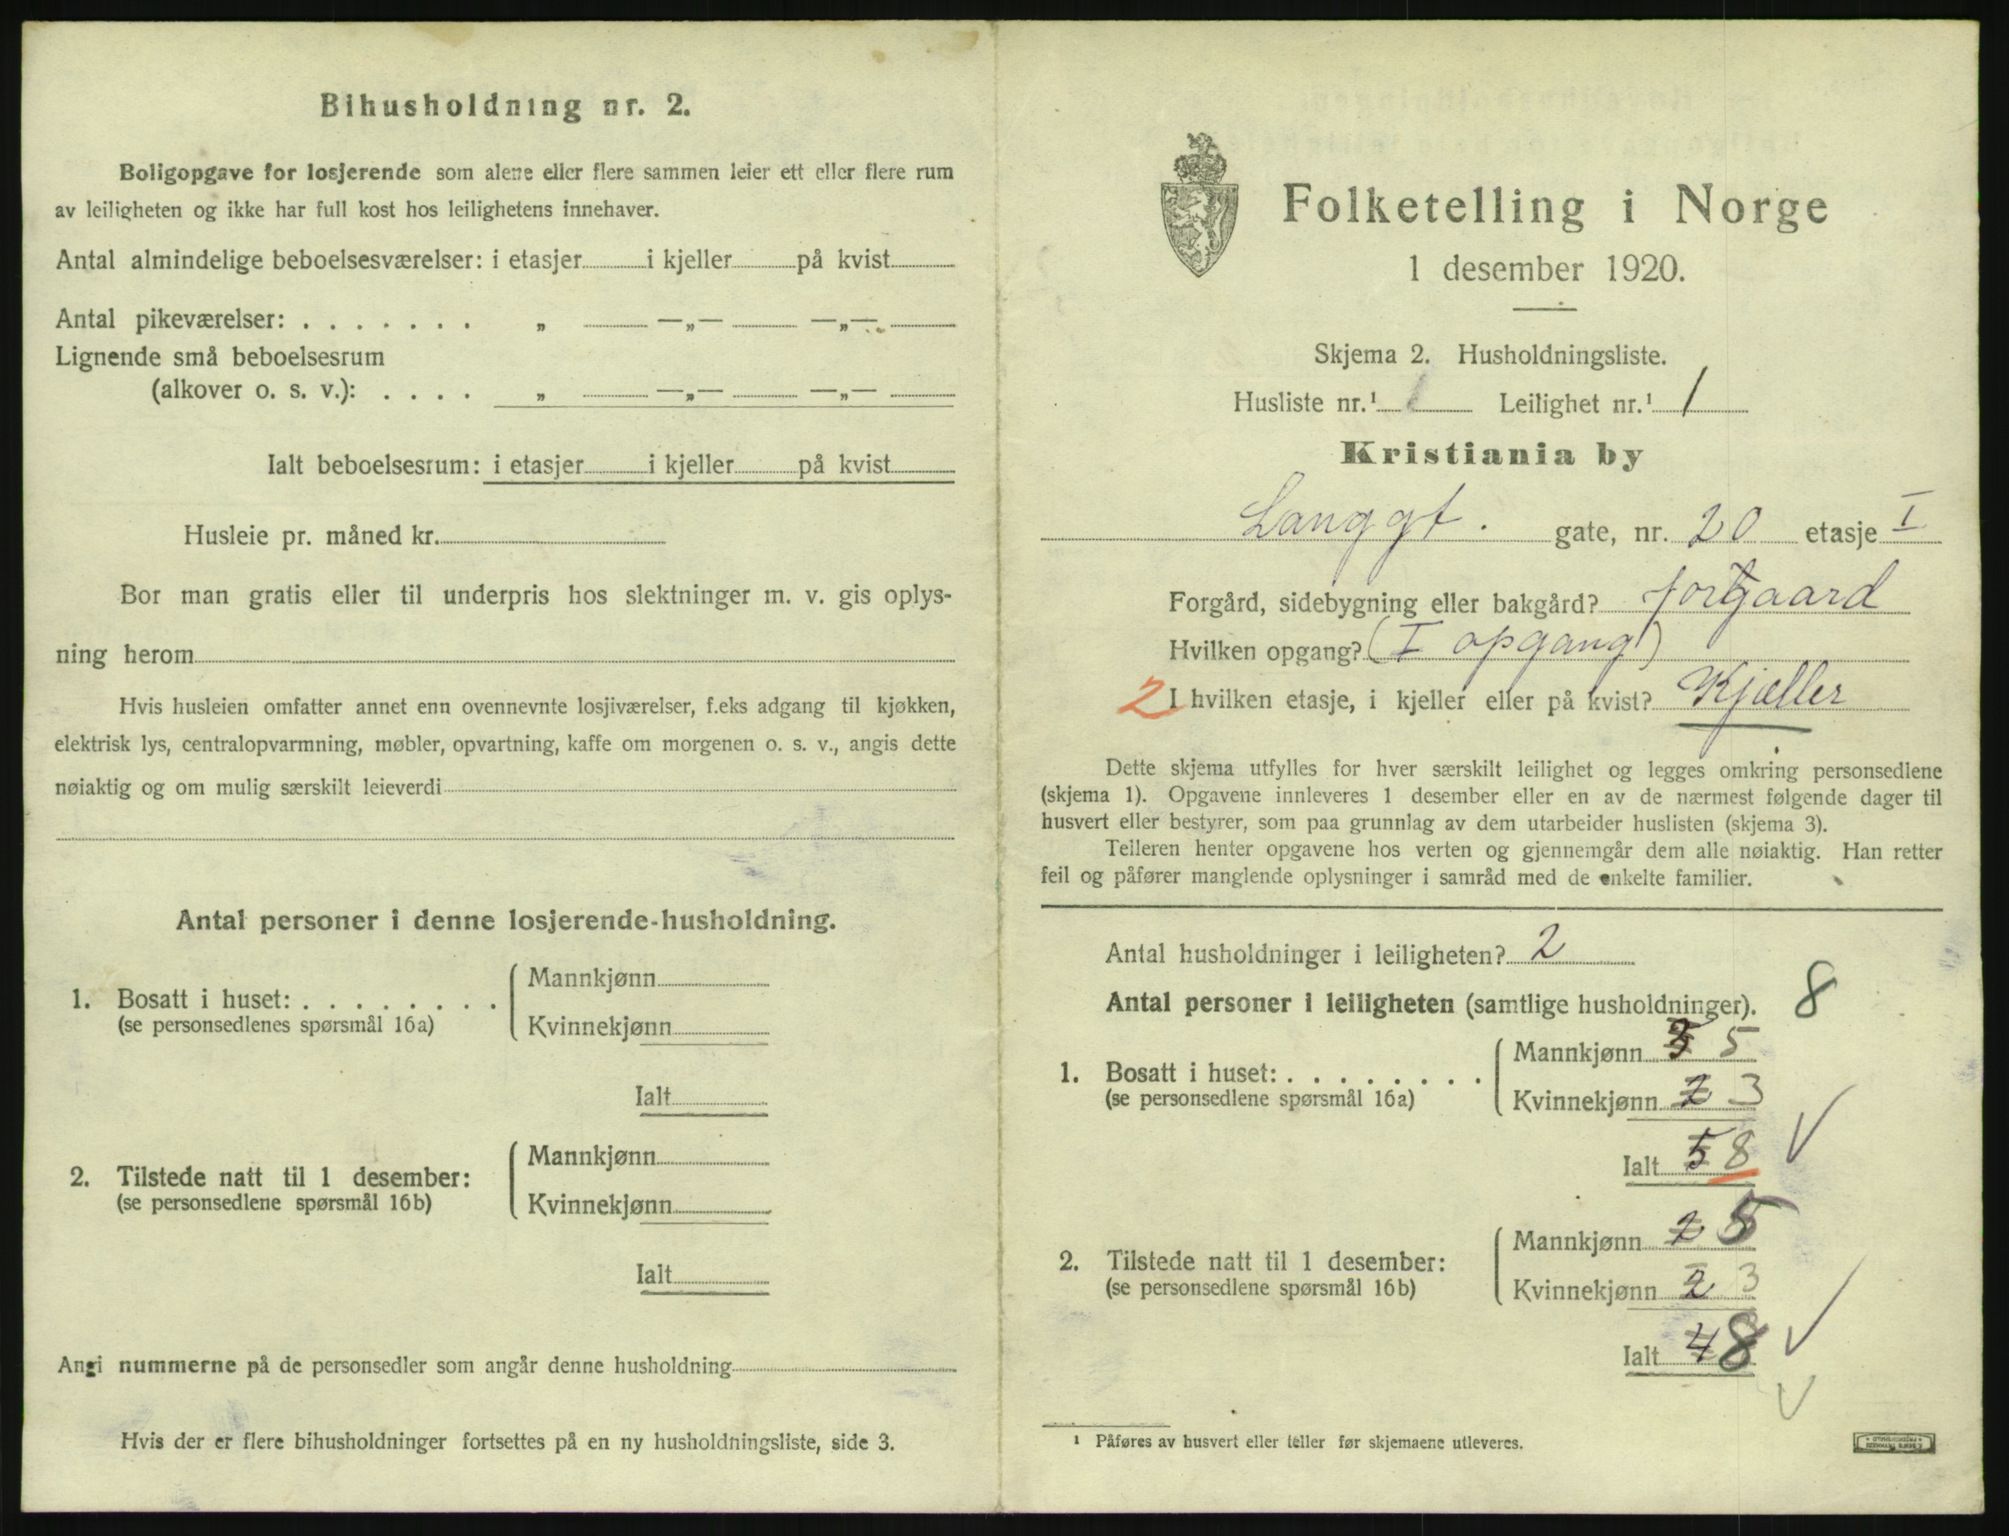 Bihusholdning nr. 2.
Boligopgave for losjerende som alene eller flere sammen leier ett eller flere rum
av leiligheten og ikke har full kost hos leilighetens innehaver.
Antal almindelige beboelsesværelser: i etasjer i kjeller på kvist
Antal pikeværelser: . . . . . . . „ —„— —„—
Lignende små beboelsesrum
(alkover o. s. v.): . . . . „ —„— —„—
Ialt beboelsesrum: i etasjer i kjeller på kvist
Husleie pr. måned kr.
Bor man gratis eller til underpris hos slektninger m. v. gis oplys-
ning herom
Hvis husleien omfatter annet enn ovennevnte losjiværelser, f.eks adgang til kjøkken,
elektrisk lys, centralopvarmning, møbler, opvartning, kaffe om morgenen o. s. v., angis dette
nøiaktig og om mulig særskilt leieverdi
Antal personer i denne losjerende-husholdning.
1. Bosatt i huset: . . . . . . . . Mannkjønn
(se personsedlenes spørsmål 16a) Kvinnekjønn
Ialt
2. Tilstede natt til 1 desember: Mannkjønn
(se personsedlene spørsmål 16b) Kvinnekjønn
Ialt
Angi nummerne på de personsedler som angår denne husholdning
Hvis der er flere bihusholdninger fortsettes på en ny husholdningsliste, side 3.
Folketelling i Norge
1 desember 1920.
Skjema 2. Husholdningsliste.
Husliste nr.¹ 1 Leilighet nr.¹ 1
Kristiania by
Langgt. gate, nr. 20 etasje I
Forgård, sidebygning eller bakgård? forgaard
Hvilken opgang? (I opgang)
2 I hvilken etasje, i kjeller eller på kvist? Kjæller
Dette skjema utfylles for hver særskilt leilighet og legges omkring personsedlene
(skjema 1). Opgavene innleveres 1 desember eller en av de nærmest følgende dager til
husvert eller bestyrer, som paa grunnlag av dem utarbeider huslisten (skjema 3).
Telleren henter opgavene hos verten og gjennemgår dem alle nøiaktig. Han retter
feil og påfører manglende oplysninger i samråd med de enkelte familier.
Antal husholdninger i leiligheten? 2
Antal personer i leiligheten (samtlige husholdninger). 8
1. Bosatt i huset: . . . . . . . . Mannkjønn 5
(se personsedlene spørsmål 16a) Kvinnekjønn 2 3
Ialt 5 8
2. Tilstede natt til 1 desember: Mannkjønn 2 5
(se personsedlene spørsmål 16b) Kvinnekjønn 2 3
Ialt 4 8
¹ Påføres av husvert eller teller før skjemaene utleveres.